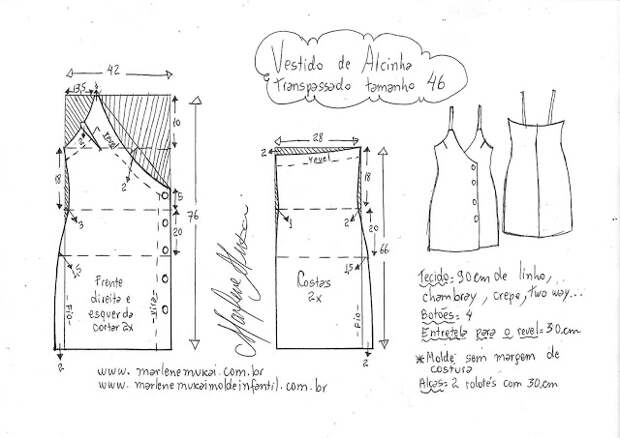 Vestido de Alcinha
transpassado tamanho 46
42
13,5
10
revel
2
18
3
5
20
76
1,5
Frente
direita e
esquerda
cortar 2x
Fio
vira
2
Marlene Mukai
28
2
revel
18
1
2
20
66
1,5
Costas
2x
Fio
2
Tecido: 90cm de linho,
chambray, crepe, two way...
Botões: 4
Entretela para o revel = 30.cm
*Molde sem margem de
costura
Alças: 2 rolotés com 30.cm
www.marlenemukai.com.br
www.marlenemukaimoldeinfantil.com.br